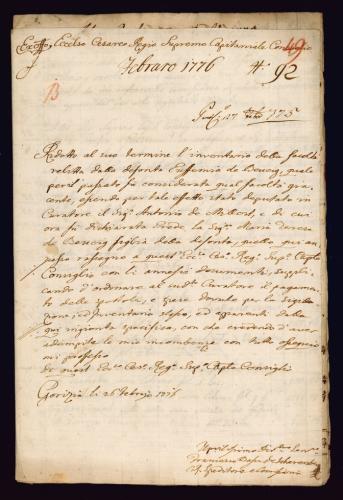 Ex Offo Eccelso Cesareo Regio Supremo Capitaniale Consiglio
49
Febraro 1776 N: 92
B
27
Ridotto al suo termine l'inventario della facoltà
relitta dalla defonta Eufemia de quale
pel passato fù considerata qual facoltà gia
cente, essendo per tale effetto stato deputato in
Curatore il Sigr Antonio de e di cui
ora fù dichiarata Erede la Sigra Maria Teresa
de figlia della defonta, quello qui an
nesso rassegno a quest' Ecc. Ces. Reg. Sup. Caple
Consiglio con li annessi documenti, suppli
cando d'ordinare al Curatore il pagamento
delle e spese dovute per la
zione, ed Inventario stesso, ed apparenti dalla
qui ingionta specifica, con che credendo d'aver
adempito le mie incombenze con tutto ossequio
mi professo
Di quest Ecc. Ces. Reg. Sup. Caple Consiglio
Gorizia li 26 Febrajo 1776
Umilissimo
Francesco
Speditore